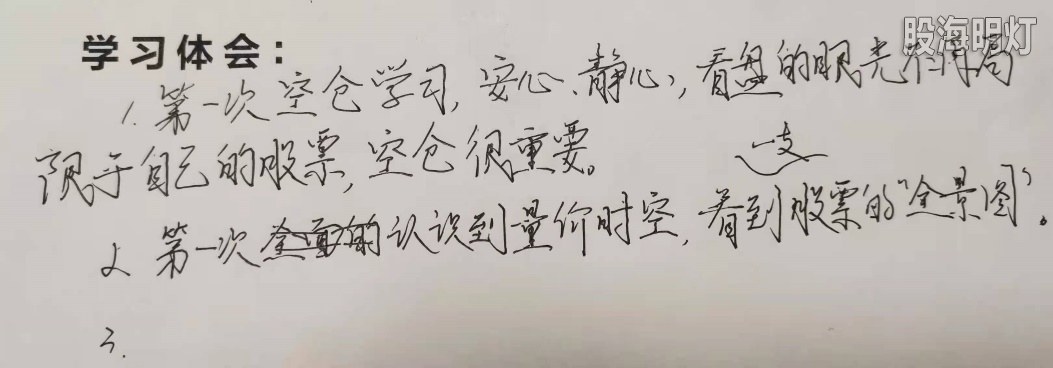 股海明灯
学习体会：
1. 第一次空仓学习，安心、静心，看盘的眼光不再局
限于自己的股票，空仓很重要。
一支
2. 第一次全面的认识到量价时空，看到股票的“全景图”。
3.